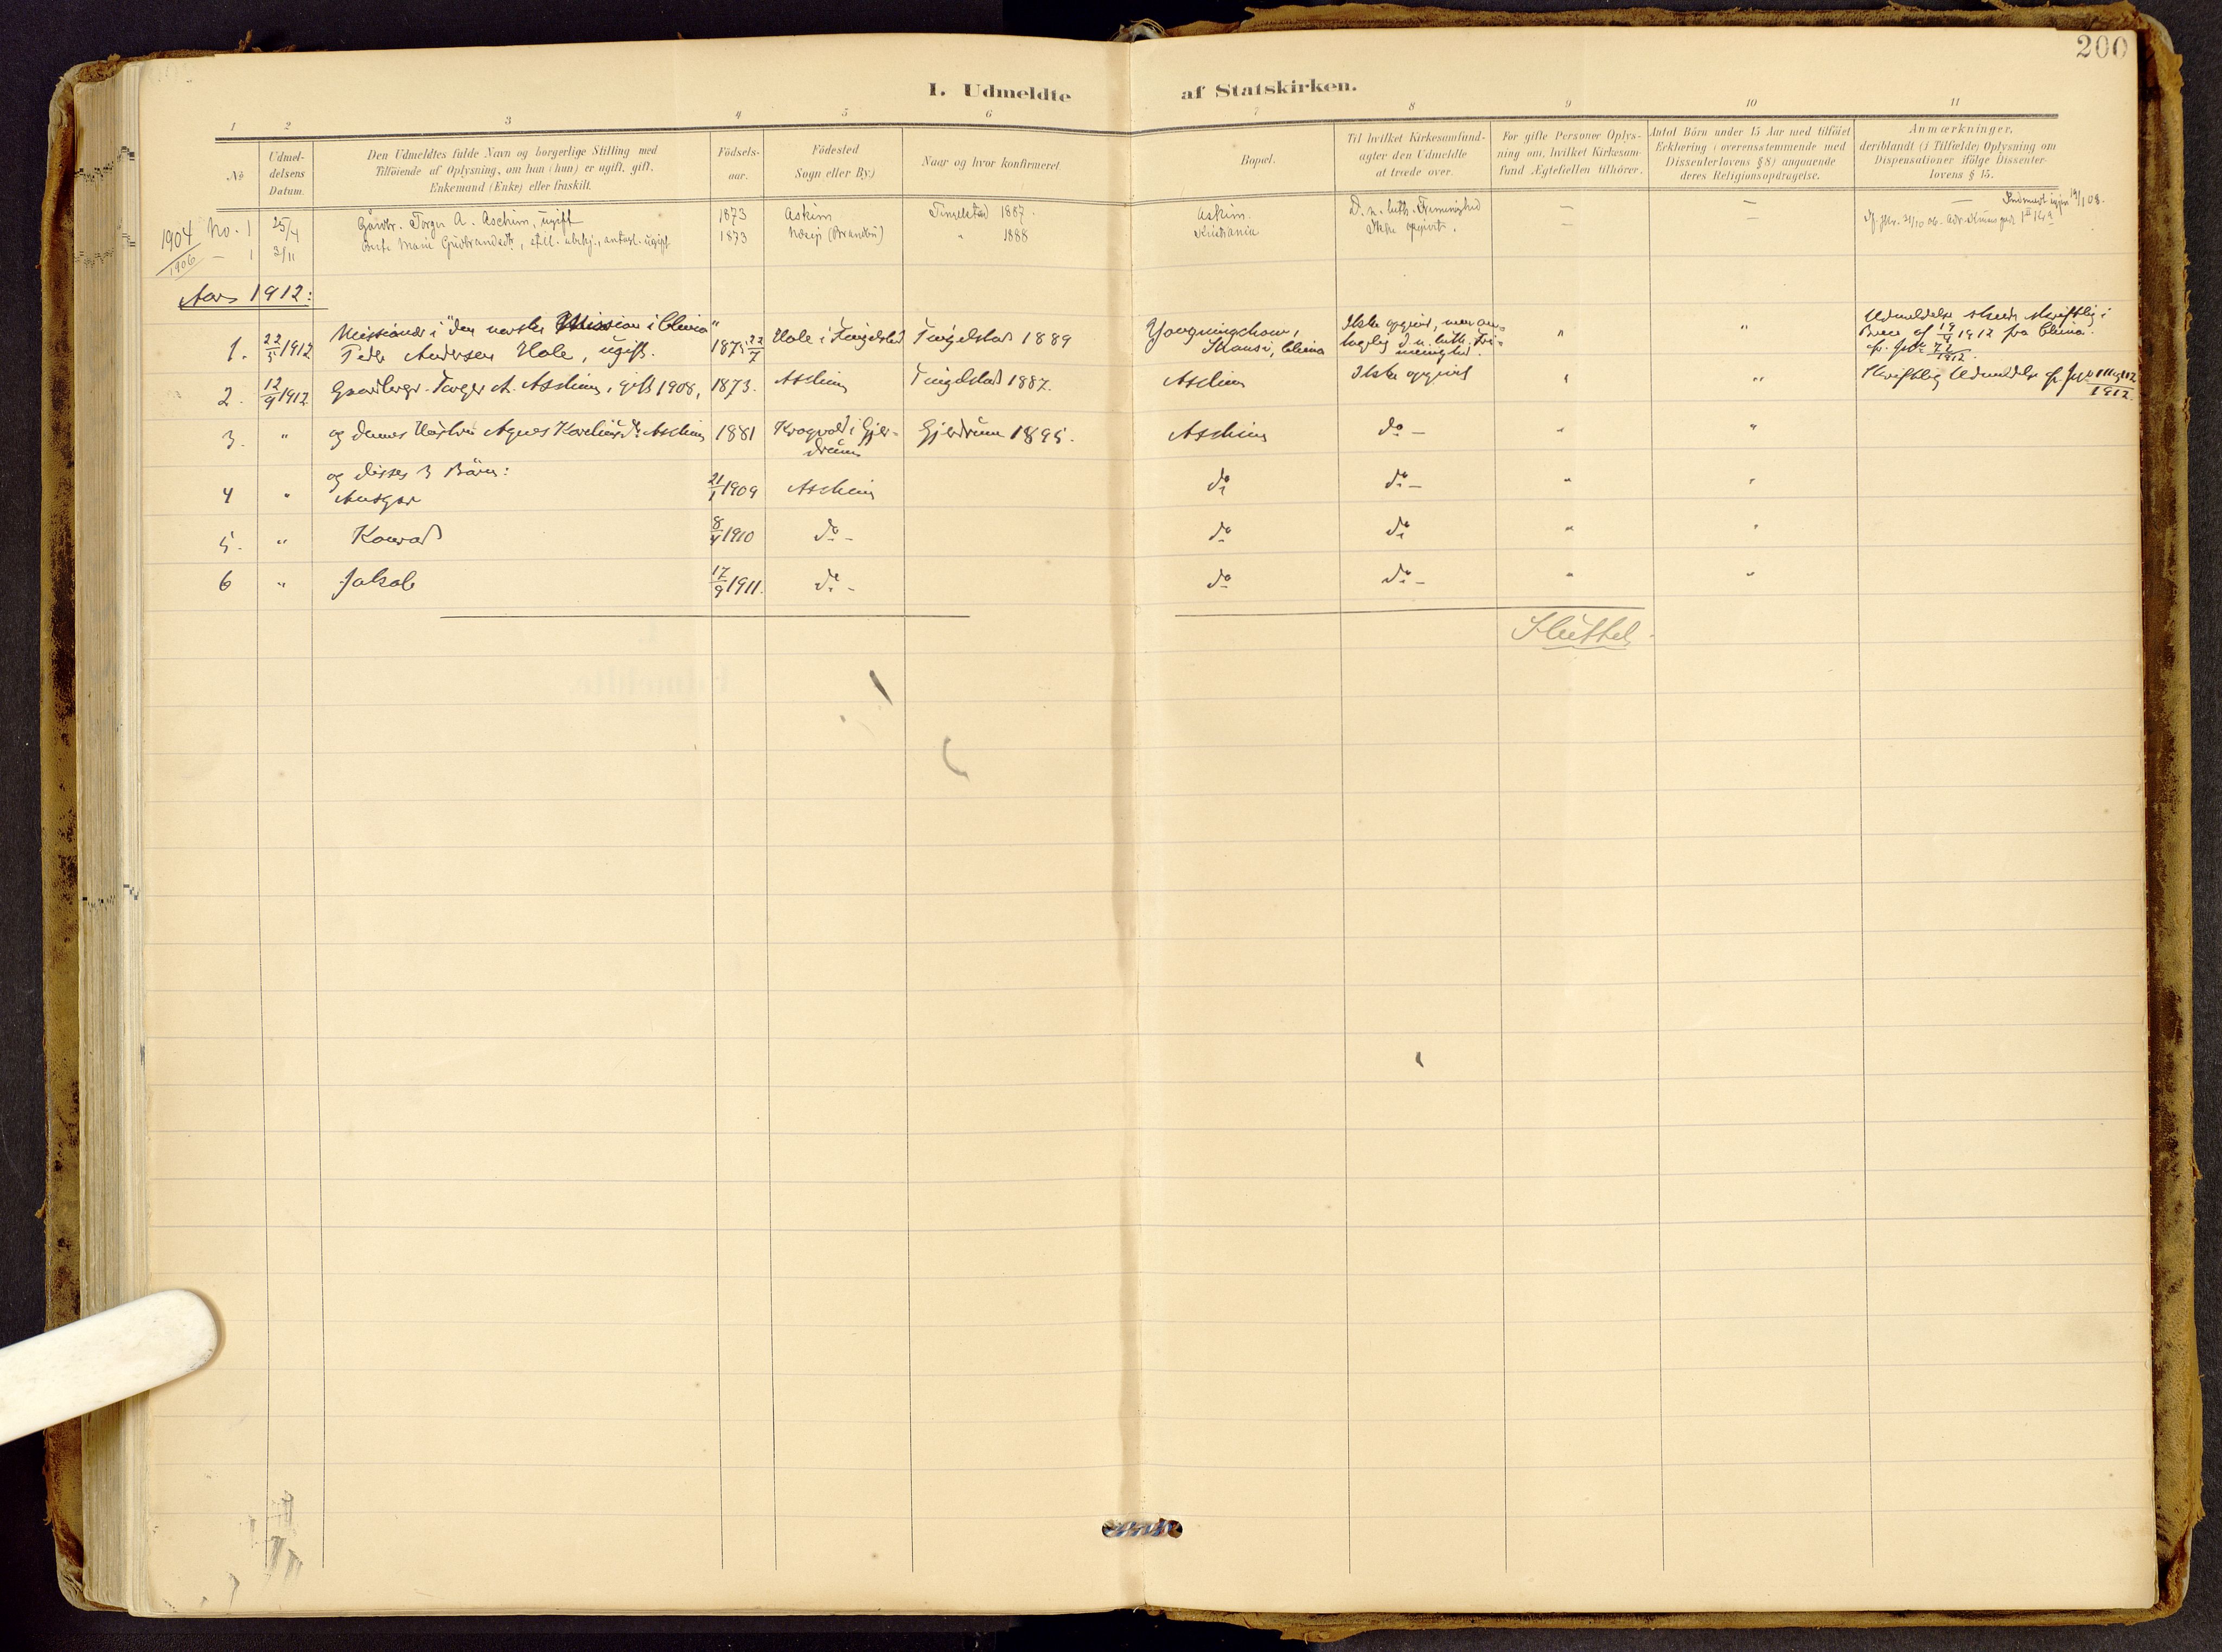 200
I. Udmeldte af Statskirken.
1 2 3 4 5 6 7 8 9 10 11
No
Udmel-
delsens
Datum.
Den Udmeldtes fulde Navn og borgerlige Stilling med
Tilføiende af Oplysning, om han (hun) er ugift, gift,
Enkemand (Enke) eller fraskilt.
Fødsels-
aar.
Fødested
Sogn eller By)
Naar og hvor konfirmeret.
Bopæl.
Til hvilket Kirkesamfund-
agter den Udmeldte
at træde over.
For gifte Personer Oplys-
ning om, hvilket Kirkesam-
fund Ægtefællen tilhører.
Antal Børn under 15 Aar med tilføiet
Erklæring i overensstemmende med
Dissenterlovens § 8) angaaende
deres Religionsopdragelse.
Anmærkninger,
deriblandt (i Tilfælde) Oplysning om
Dispensationer ifølge Dissenter-
lovens § 15.
1904 No. 1 25/4 Gårdbr. Torger A. Aschim, ugift 1873 Askim Tingelstad 1887. Askim. D. n. luth. Frimenighed — — — Indmeldt igjen 19/1 08.
1906 — 1 3/11 Marie Gudbrandsdtr, ugift 1873 (Brandbu) " 1888 Kristiania Ikke opgivet. — —
Aar 1912:
1. 22/5 1912 Missionær i "den norske Mission i China"
Peder Andersen Hole, ugift. 1875 22/7 Hole i Tingelstad Tingelstad 1889
Shansi, China
Ikke opgivet, men an-
tagelig d. n. luth. Fri-
menighed.
" "
Udmeldelse skede skriftlig i
Brev af 19/4 1912 fra China.
2. 12/9 1912 Gaardbrgr. Torger A. Aschim, gift 1908, 1873. Aschim Tingelstad 1887. Aschim Ikke opgivet " " Skriftlig Udmeldelse
1912.
3. " og dennes Hustru Agnes Aschim 1881 Krogvold i Gjer-
drum
Gjerdrum 1895. Aschim do — " "
og disses 3 Børn:
4 " Ansgar 21/1 1909 Aschim do do — " "
5. " Konrad 8/4 1910 do - do do " "
6 " Jakob 17/9 1911. do - do do — " "
Sluttet.